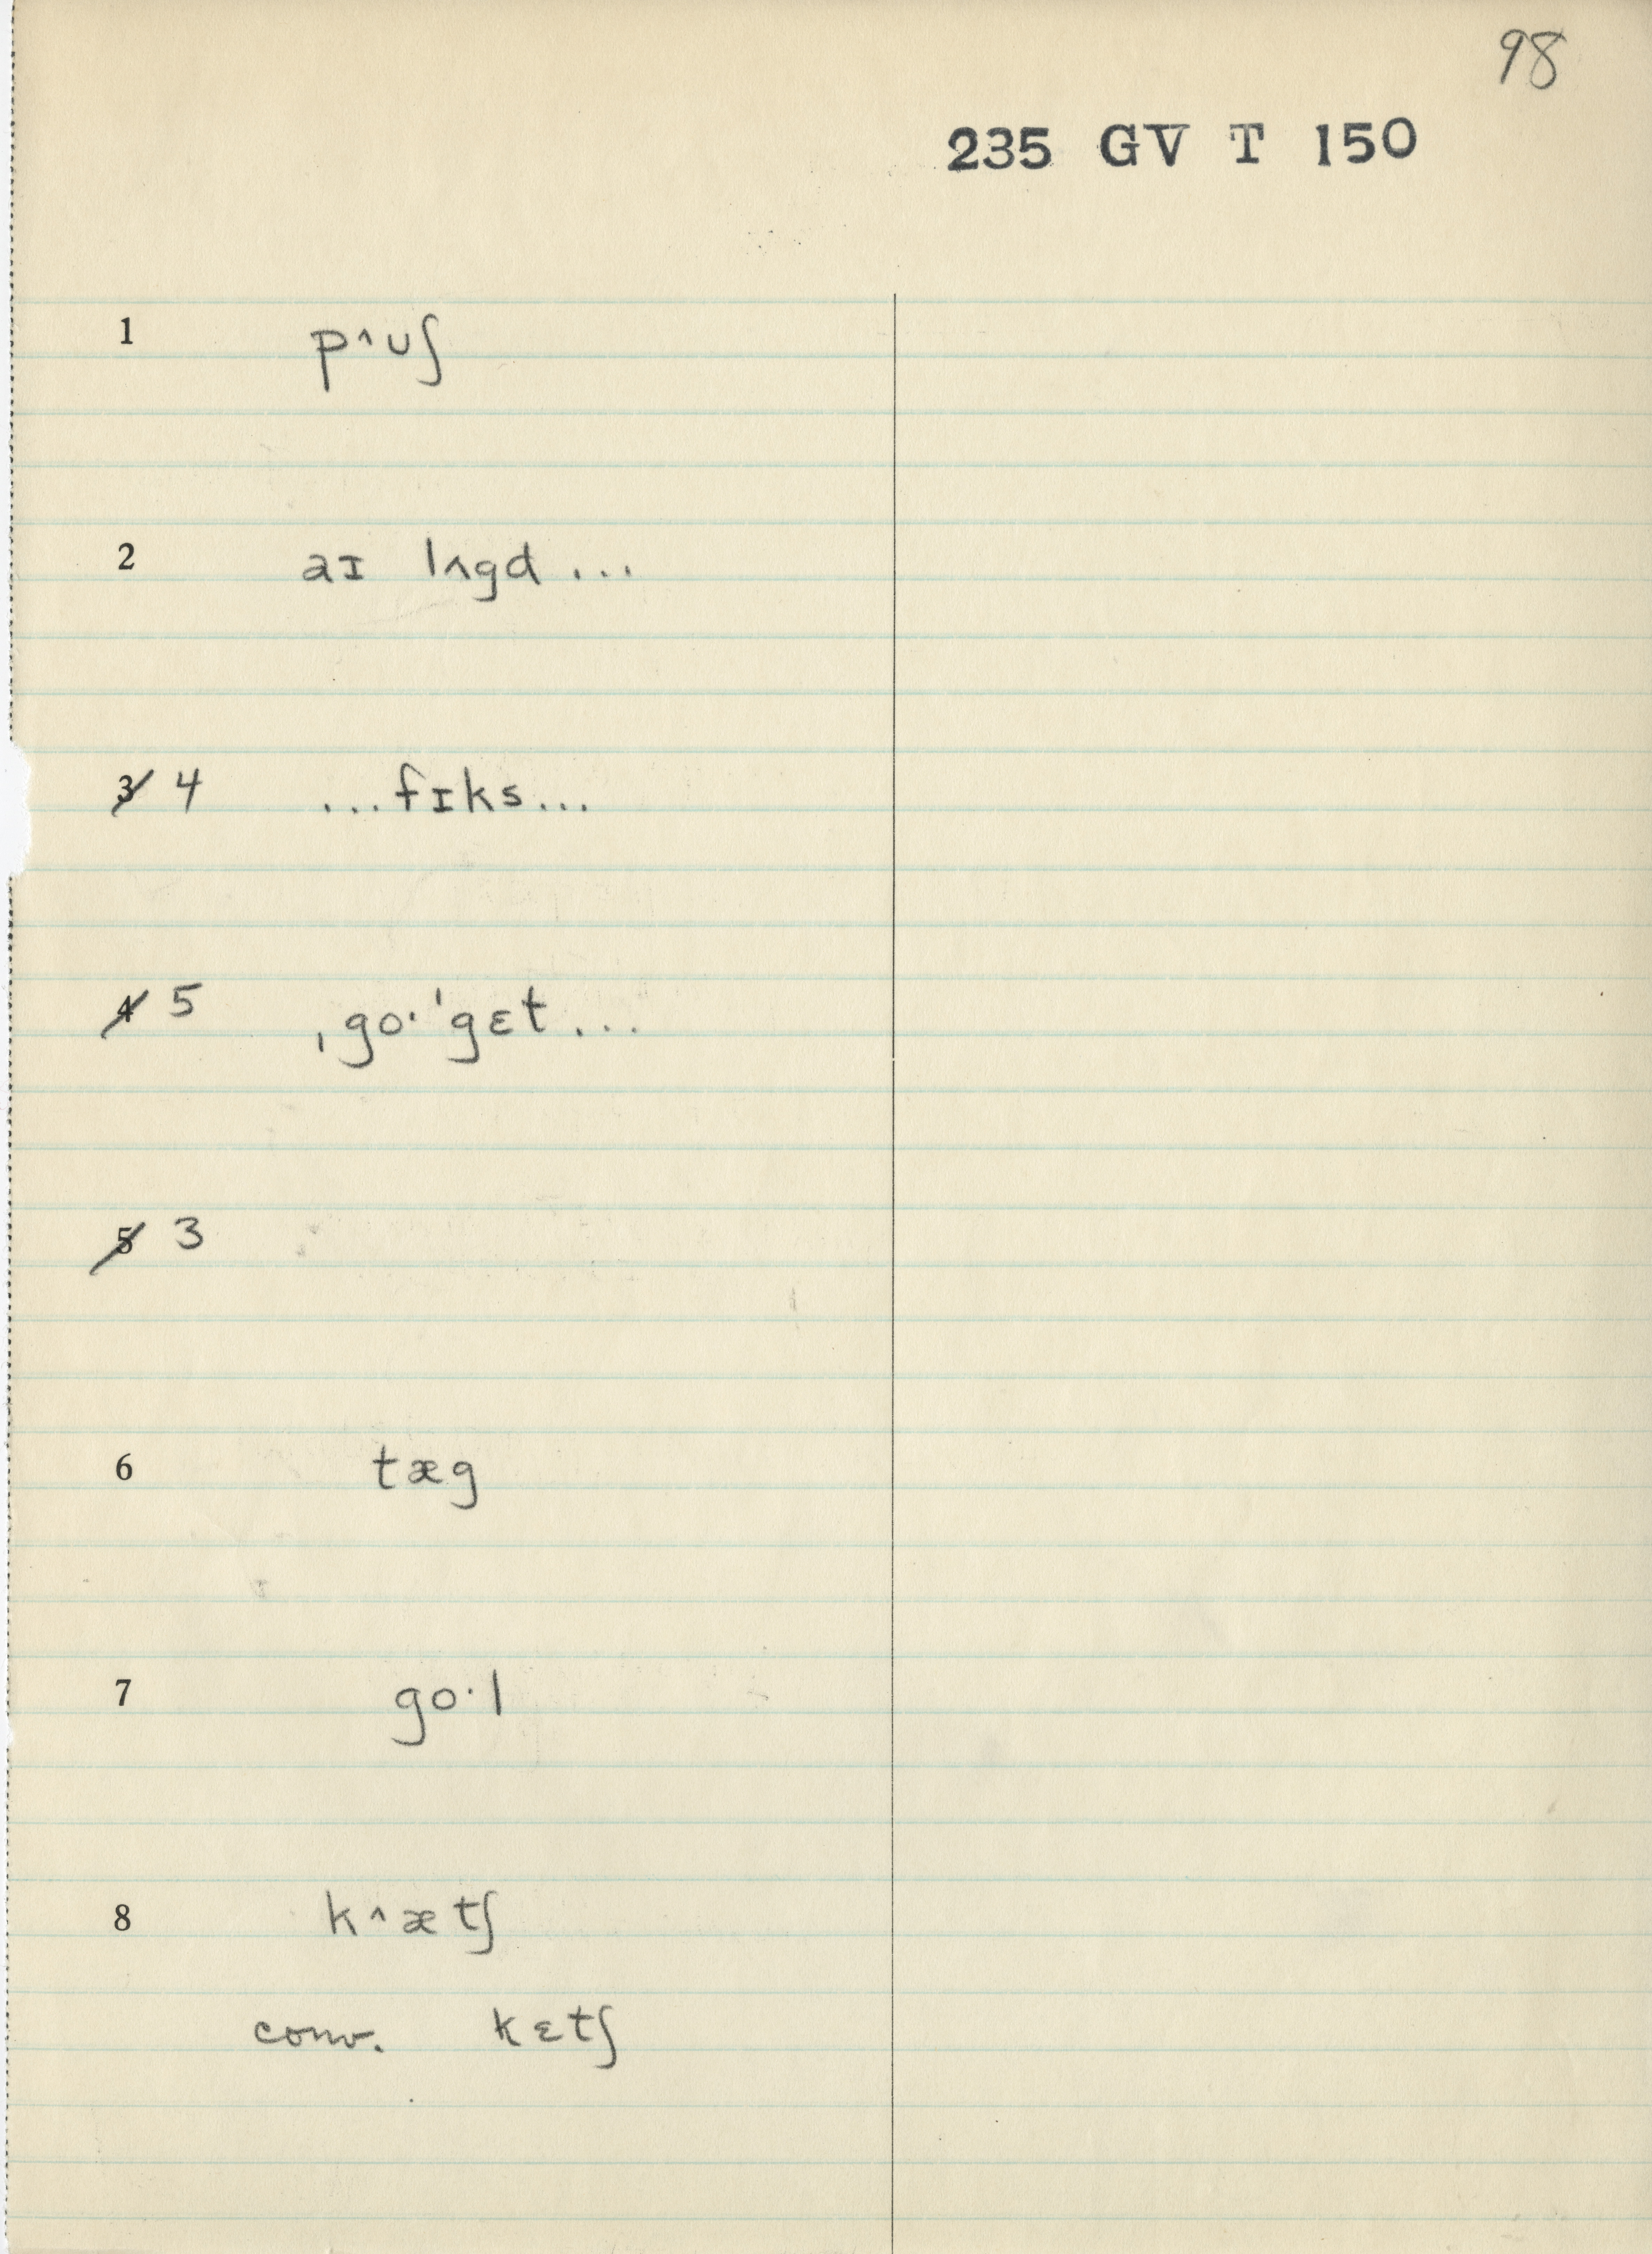 98
235 GV T 150
1 p^ʊʃ
2 aɪ lʌgd ...
3 4 ...fɪks...
4 5 ˌgo·ˈgɛt...
5 3
6 tæg
7 go·l
8 k^ætʃ
conv. kɛtʃ